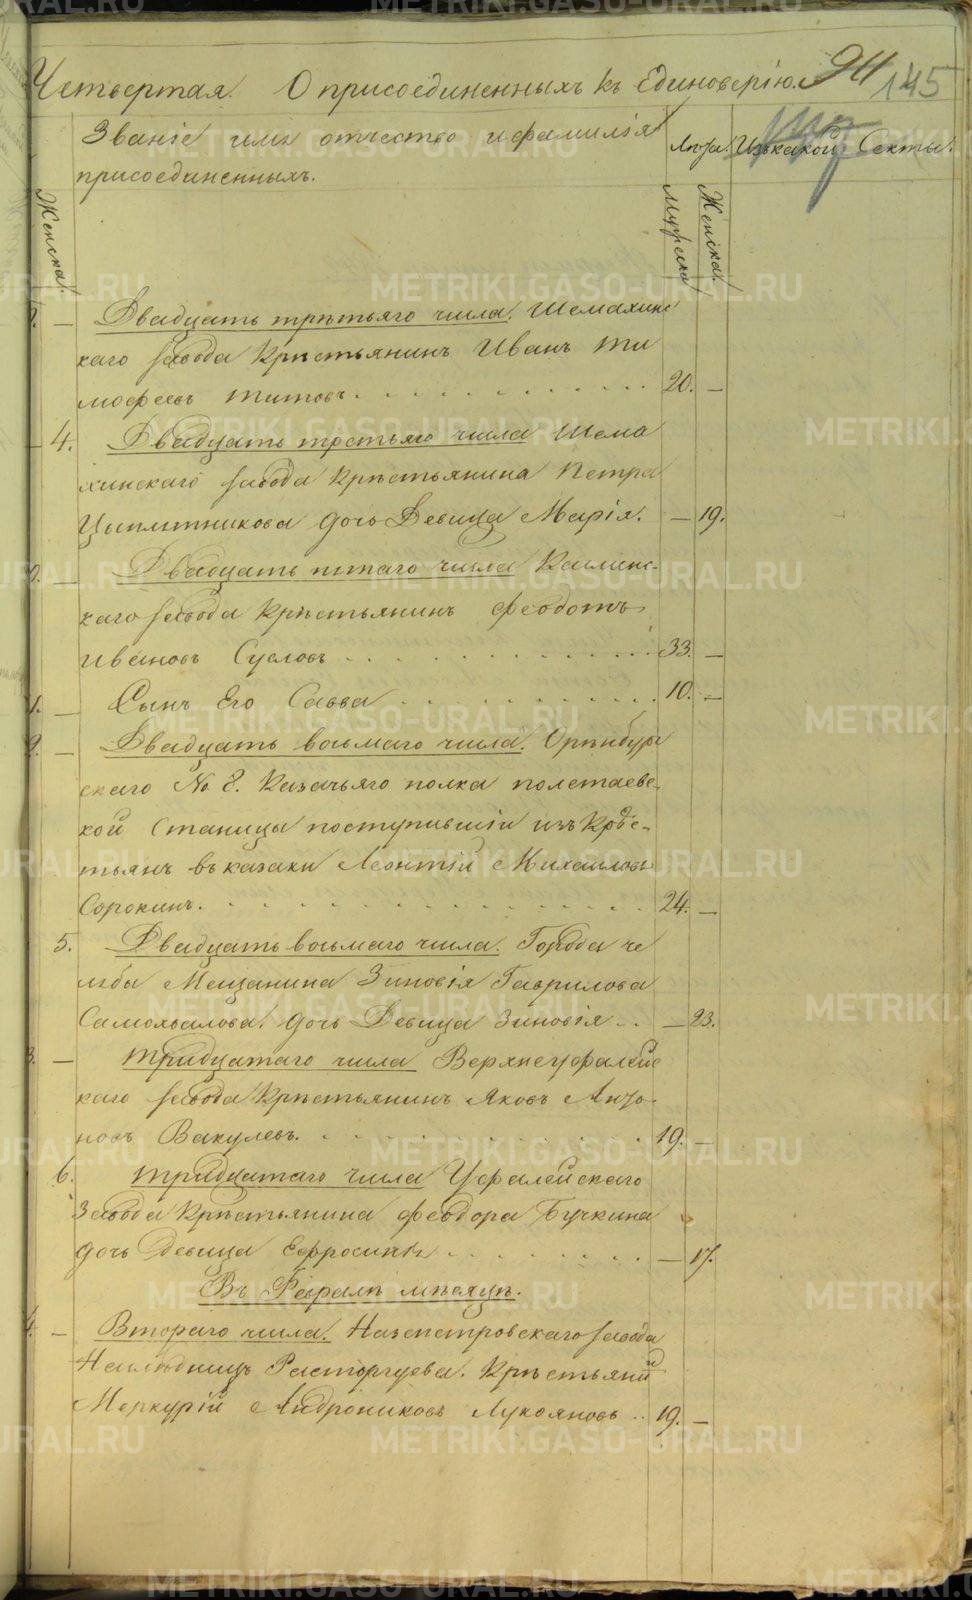 Четвертая. О присоединенныхъ къ Единоверію. 94 145
Званіе имя отчество и фамилія Лѣта. Изъ какой Секты.
присоединенныхъ.
Женска. Мужеска Женска.
— Двадцать третьяго числа. Шемахинс
каго завода Крестьянинъ Иванъ Ти
мофеевъ Титовъ. 20. —
— 4. Двадцать третьяго числа Шема
хинскаго завода Крестьянина Петра
Цыплятникова дочь Девица Марія. — 19.
— Двадцать пятаго числа Каслинс-
каго завода Крестьянинъ Феодотъ
Ивановъ Сусловъ 33. —
— Сынъ Его Савва 10. —
— Двадцать восьмаго числа. Оренбург
скаго № 8. Казачьяго полка полетаевс
кой Станицы поступившій изъ Кре-
стьянъ въ казаки Леонтій Михаиловъ
Сорокинъ. 24. —
5. Двадцать восьмаго числа. Города Че
лябы Мещанина Зиновія Гаврилова
Самохвалова. дочь Девица Зиновія — 23.
3. — Тридцатаго числа Верхнеуфалейс
каго завода Крестьянинъ Яковъ Анто-
новъ Вакулевъ. 19. —
6. Тридцатаго числа Уфалейскаго
Завода Крестьянина Феодора Бучкина
дочь Девица Ефросинія — 17.
Въ Феврале месяце.
4. — Втораго числа. Назепетровскаго завода
Наследницъ Расторгуева. Крестьянин
Меркурій Андрониковъ Лукояновъ 19. —
METRIKI.GASO-URAL.RU